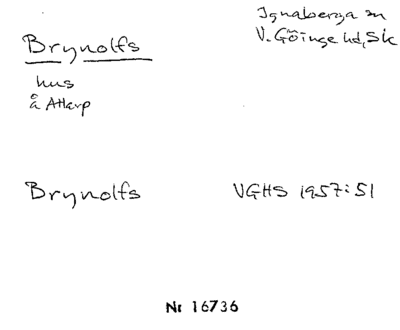 Brynolfs
hus
å Attarp
Ignaberga sn
V. Göinge hd, Sk
Brynolfs VGHS 1957:51
Nr 16736